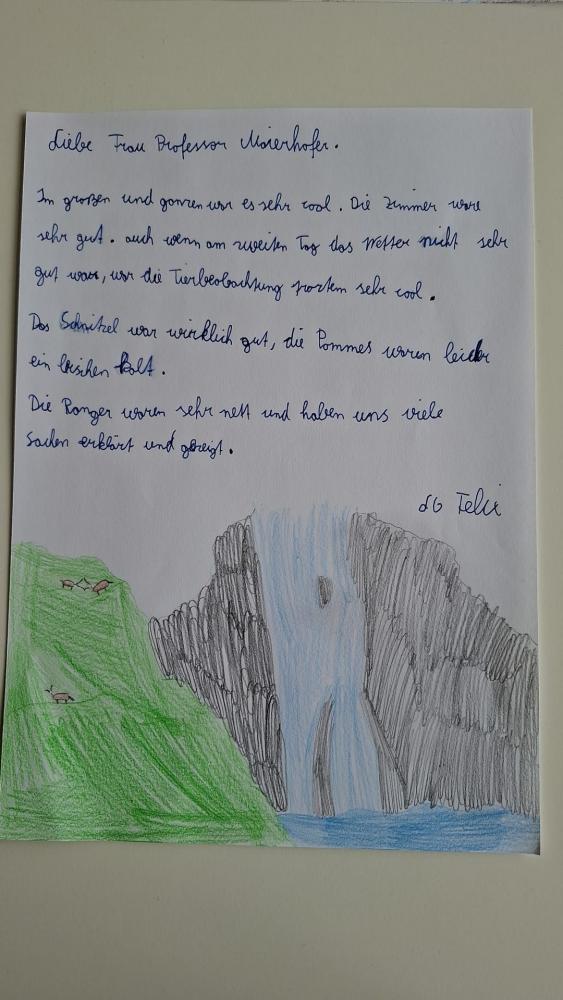 Liebe Frau Professor Maierhofer.
Im großen und ganzen war es sehr cool. Die Zimmer ware
sehr gut. auch wenn am zweiten Tag das Wetter nicht sehr
gut war, war die Tierbeobachtung trotzem sehr cool.
Das Schnitzel war wirklich gut, die Pommes waren leider
ein bischen kalt.
Die Ranger waren sehr nett und haben uns viele
Sachen erklärt und gezeigt.
LG Felix